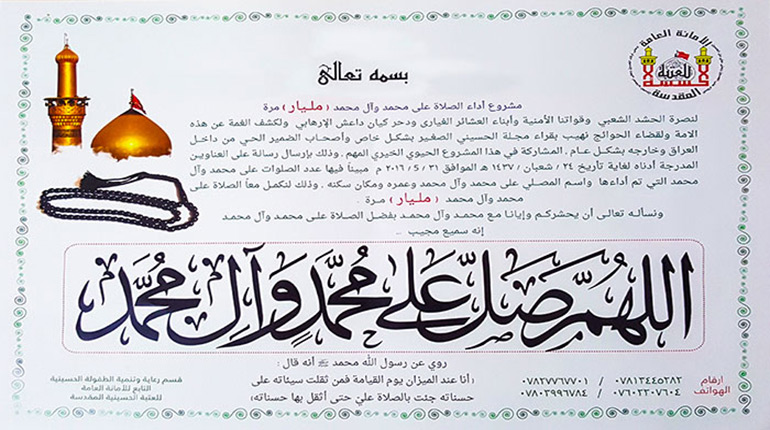 الأمانة العامة
للعتبة
الحسينية
المقدسة
بسمه تعالى
مشروع أداء الصلاة على محمد وآل محمد ( مليار ) مرة
لنصرة الحشد الشعبي وقواتنا الأمنية وأبناء العشائر الغيارى ودحر كيان داعش الإرهابي ولكشف الغمة عن هذه
الامة ولقضاء الحوائج نهيب بقراء مجلة الحسيني الصغير بشكل خاص وأصحاب الضمير الحي من داخل
العراق وخارجه بشكل عام، المشاركة في هذا المشروع الحيوي الخيري المهم. وذلك بإرسال رسالة على العناوين
المدرجة أدناه لغاية تأريخ ٢٤ / شعبان / ١٤٣٧ هـ الموافق ٣١ / ٥ / ٢٠١٦ م مبيناً فيها عدد الصلوات على محمد وآل
محمد التي تم أداءها واسم المصلي على محمد وآل محمد وعمره ومكان سكنه . وذلك لنكمل معاً الصلاة على
محمد وآل محمد ( مليار ) مرة .
ونسأله تعالى أن يحشركم وإيانا مع محمد وآل محمد بفضل الصلاة على محمد وآل محمد
إنه سميع مجيب ..
اللهم صل على محمد وآل محمد
روي عن رسول الله محمد ﷺ أنه قال :
: أنا عند الميزان يوم القيامة فمن ثقلت سيئاته على
حسناته جئت بالصلاة عليّ حتى أثقل بها حسناته:
ارقام
الهواتف
٠٧٨١٣٤٤٥٢٨٢ / ٠٧٨٢٧٧٦٧٧٠١
٠٧٦٠٢٣٠٧٦٠٤ / ٠٧٨٠٣٩٩٦٧٨٤
قسم رعاية وتنمية الطفولة الحسينية
التابع للأمانة العامة
للعتبة الحسينية المقدسة